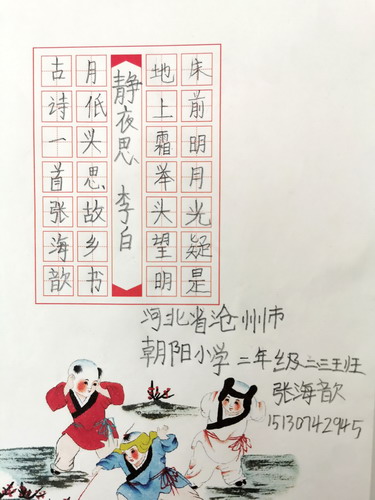 朱前明月光疑是
地上霜举头望明
静夜思 李白
月低头思故乡书
古诗一首张海歆
河北省沧州市
朝阳小学 二年级 班
张海歆
15130742945